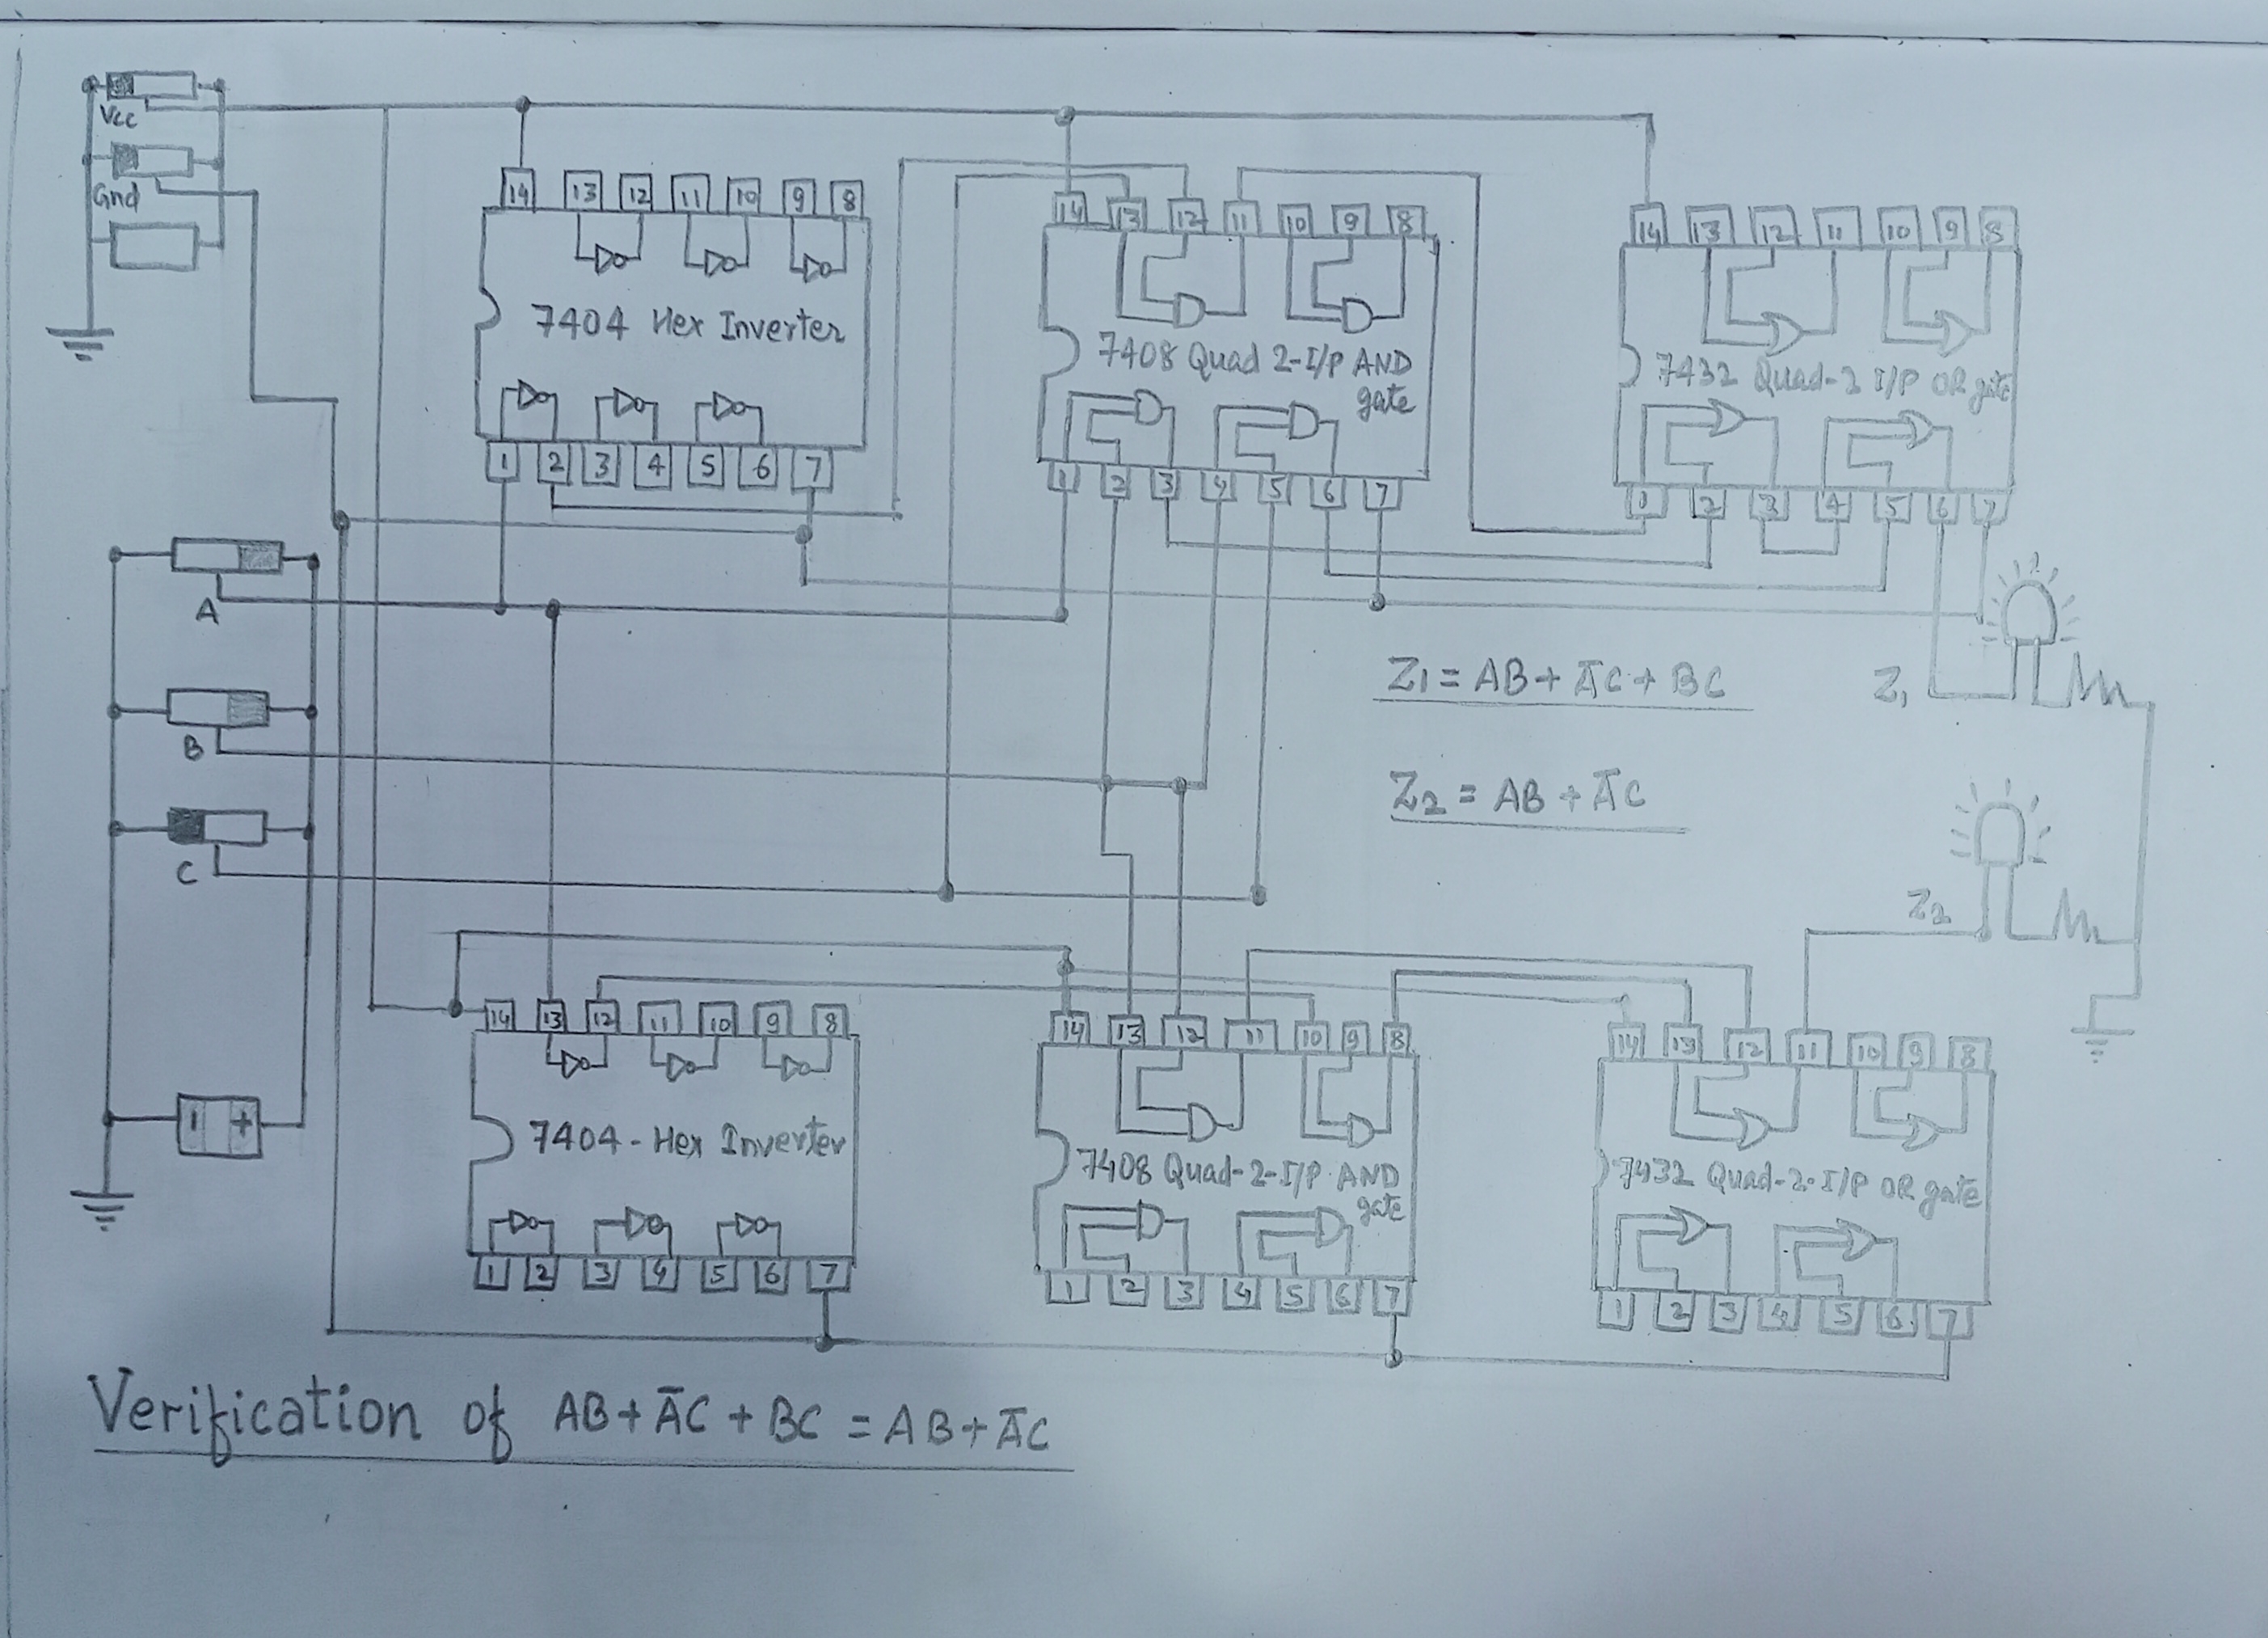 Vcc
Gnd
14 13 12 11 10 9 8
7404 Hex Inverter
1 2 3 4 5 6 7
14 13 12 11 10 9 8
7408 Quad 2-I/P AND
gate
1 2 3 4 5 6 7
14 13 12 11 10 9 8
7432 Quad-2 I/P OR gate
1 2 3 4 5 6 7
A
B
C
Z₁ = AB + A̅C + BC
Z₁
Z₂ = AB + A̅C
Z₂
- +
14 13 12 11 10 9 8
7404 - Hex Inverter
1 2 3 4 5 6 7
14 13 12 11 10 9 8
7408 Quad-2-I/P AND
gate
1 2 3 4 5 6 7
14 13 12 11 10 9 8
7432 Quad-2-I/P OR gate
1 2 3 4 5 6 7
Verification of AB + A̅C + BC = AB + A̅C